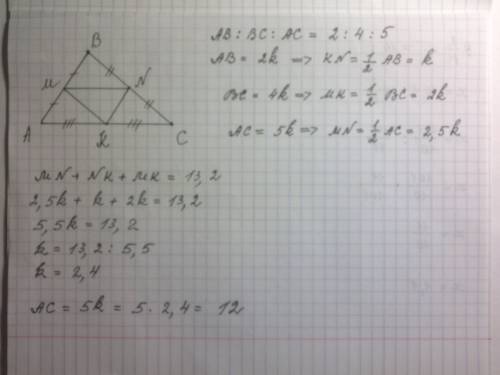 B
M
N
A
K
C
AB : BC : AC = 2 : 4 : 5
AB = 2k => KN = 1/2 AB = k
BC = 4k => MK = 1/2 BC = 2k
AC = 5k => MN = 1/2 AC = 2,5k
MN + NK + MK = 13,2
2,5k + k + 2k = 13,2
5,5k = 13,2
k = 13,2 : 5,5
k = 2,4
AC = 5k = 5 · 2,4 = 12